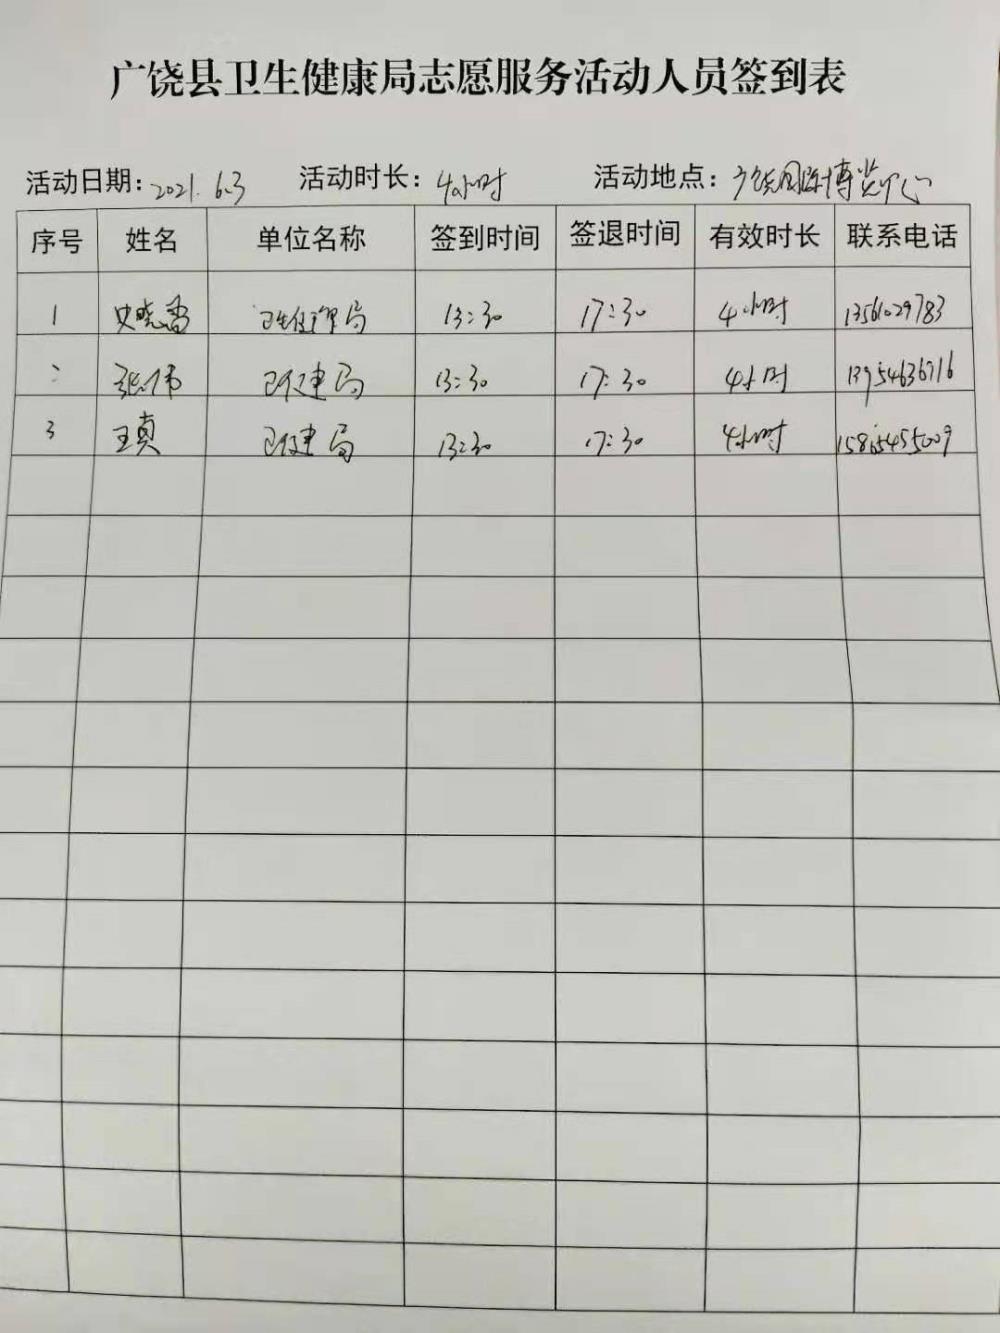 广饶县卫生健康局志愿服务活动人员签到表
活动日期：2021.6.3 活动时长：4小时 活动地点：广饶国际博览中心
序号 姓名 单位名称 签到时间 签退时间 有效时长 联系电话
1 史晓香 局 13:30 17:30 4小时 13561029783
2 张伟 卫健局 13:30 17:30 4小时 13954636716
3 王真 卫健局 13:30 17:30 4小时